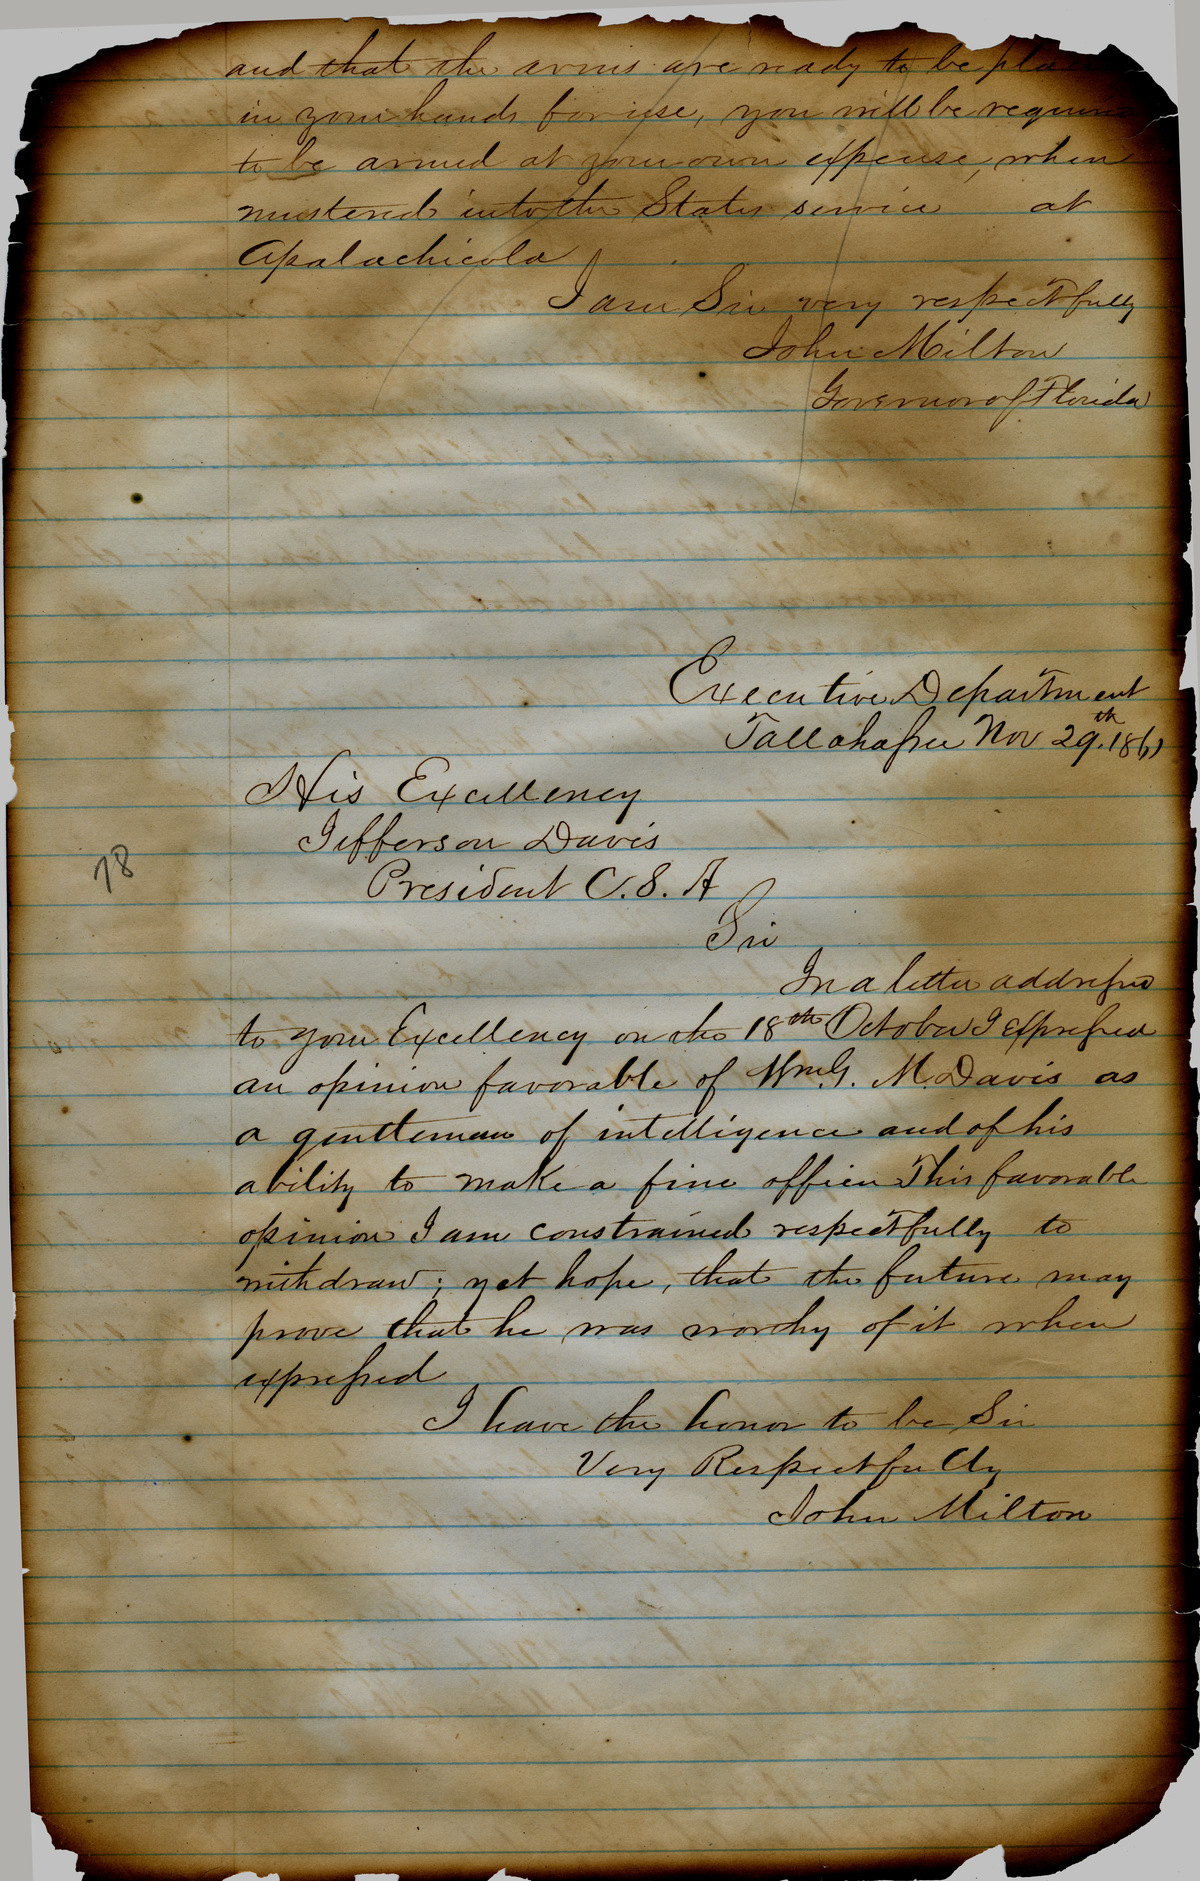 and that the arms are ready to be
in your hands for use, you will be
to be armed at your own expense, when
mustered into the States service at
Apalachicola
I am Sir very respectfully
John Milton
Governor of Florida
Executive Department
Tallahassee Nov 29.th 1861
His Excellency
Jefferson Davis
President C.S.A
78
Sir
In a letter addressed
to your Excellency on the 18th October I expressed
an opinion favorable of Wm G. M. Davis as
a gentleman of intelligence and of his
ability to make a fine officer This favorable
opinion I am constrained respectfully to
withdraw; yet hope, that the future may
prove that he was worthy of it when
expressed
I have the honor to be Sir
Very Respectfully
John Milton